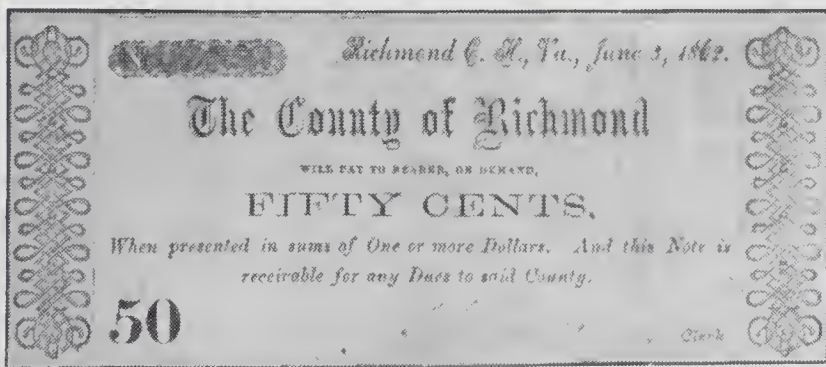 Richmond C. H., Va., June 3, 1862.
The County of Richmond
WILL PAY TO BEARER, ON DEMAND,
FIFTY CENTS,
When presented in sums of One or more Dollars. And this Note is
receivable for any Dues to said County.
50
Clerk